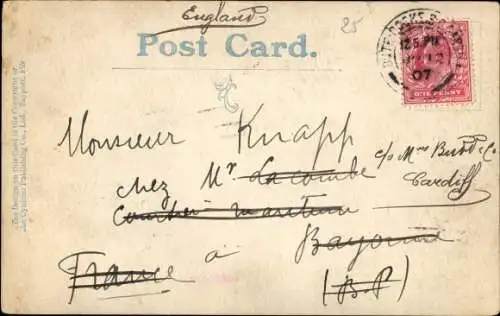 England
25
Post Card.
BUTE DOCKS
12.15 PM
12
07
ONE PENNY
Monsieur Knapp
chez Mr. Lacombe
c/o Mess Budd & Co
Cardiff
Courtier maritime
à Bayonne
France (B.P)